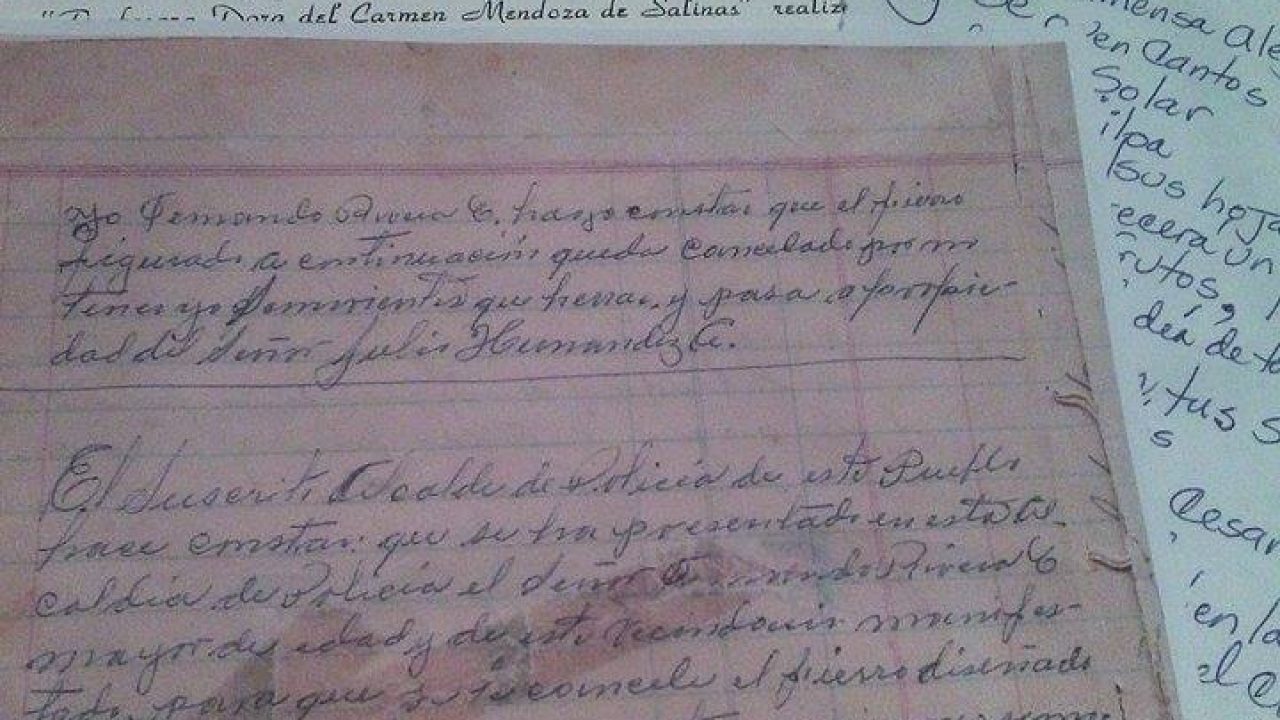 Dora del Carmen Mendoza de Salinas" realiz
Yo Fernando Rivera C. hago constar que el fierro
figurado a continuación queda cancelado por no
tener yo semovientes que herrar, y pasa a propie-
dad del Señor Julio Hernandez C.
El Suscrito Alcalde de Policía de este Pueblo
hace constar: que se ha presentado en esta Al-
caldía de Policía el Señor Fernando Rivera C
mayor de edad y de este vecindario manifes-
tado, para que se cancele el fierro diseñado
mensa ale
en Cantos
Solar
ilpa
sus hoja
ecera un
rutos,
dea de
y tus s
s
Cesar
en la
el C